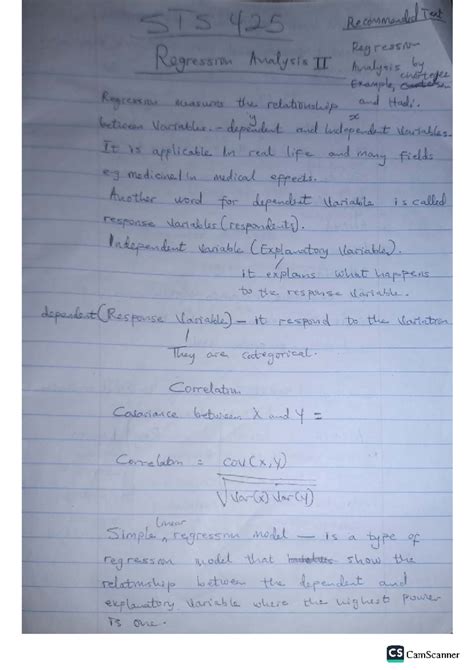 STS 425
Recommended Text
Regression Analysis II
Regression
Analysis by
Example, chatterjee
and Hadi.
Regression measures the relationship
y x
between Variables. - dependent and Independent Variables.
It is applicable in real life and many fields
e.g medicine/in medical effects.
Another word for dependent Variable is called
response variables (respondents).
Independent Variable (Explanatory Variable).
it explains what happens
to the response Variable.
dependent (Response Variable) - it respond to the Variation
They are categorical.
Correlation
Covariance between X and Y =
Correlation = Cov(X,Y)
√Var(x) Var(y)
Simple linear regression model - is a type of
regression model that show the
relationship between the dependent and
explanatory Variable where the highest power
is one.
CS CamScanner